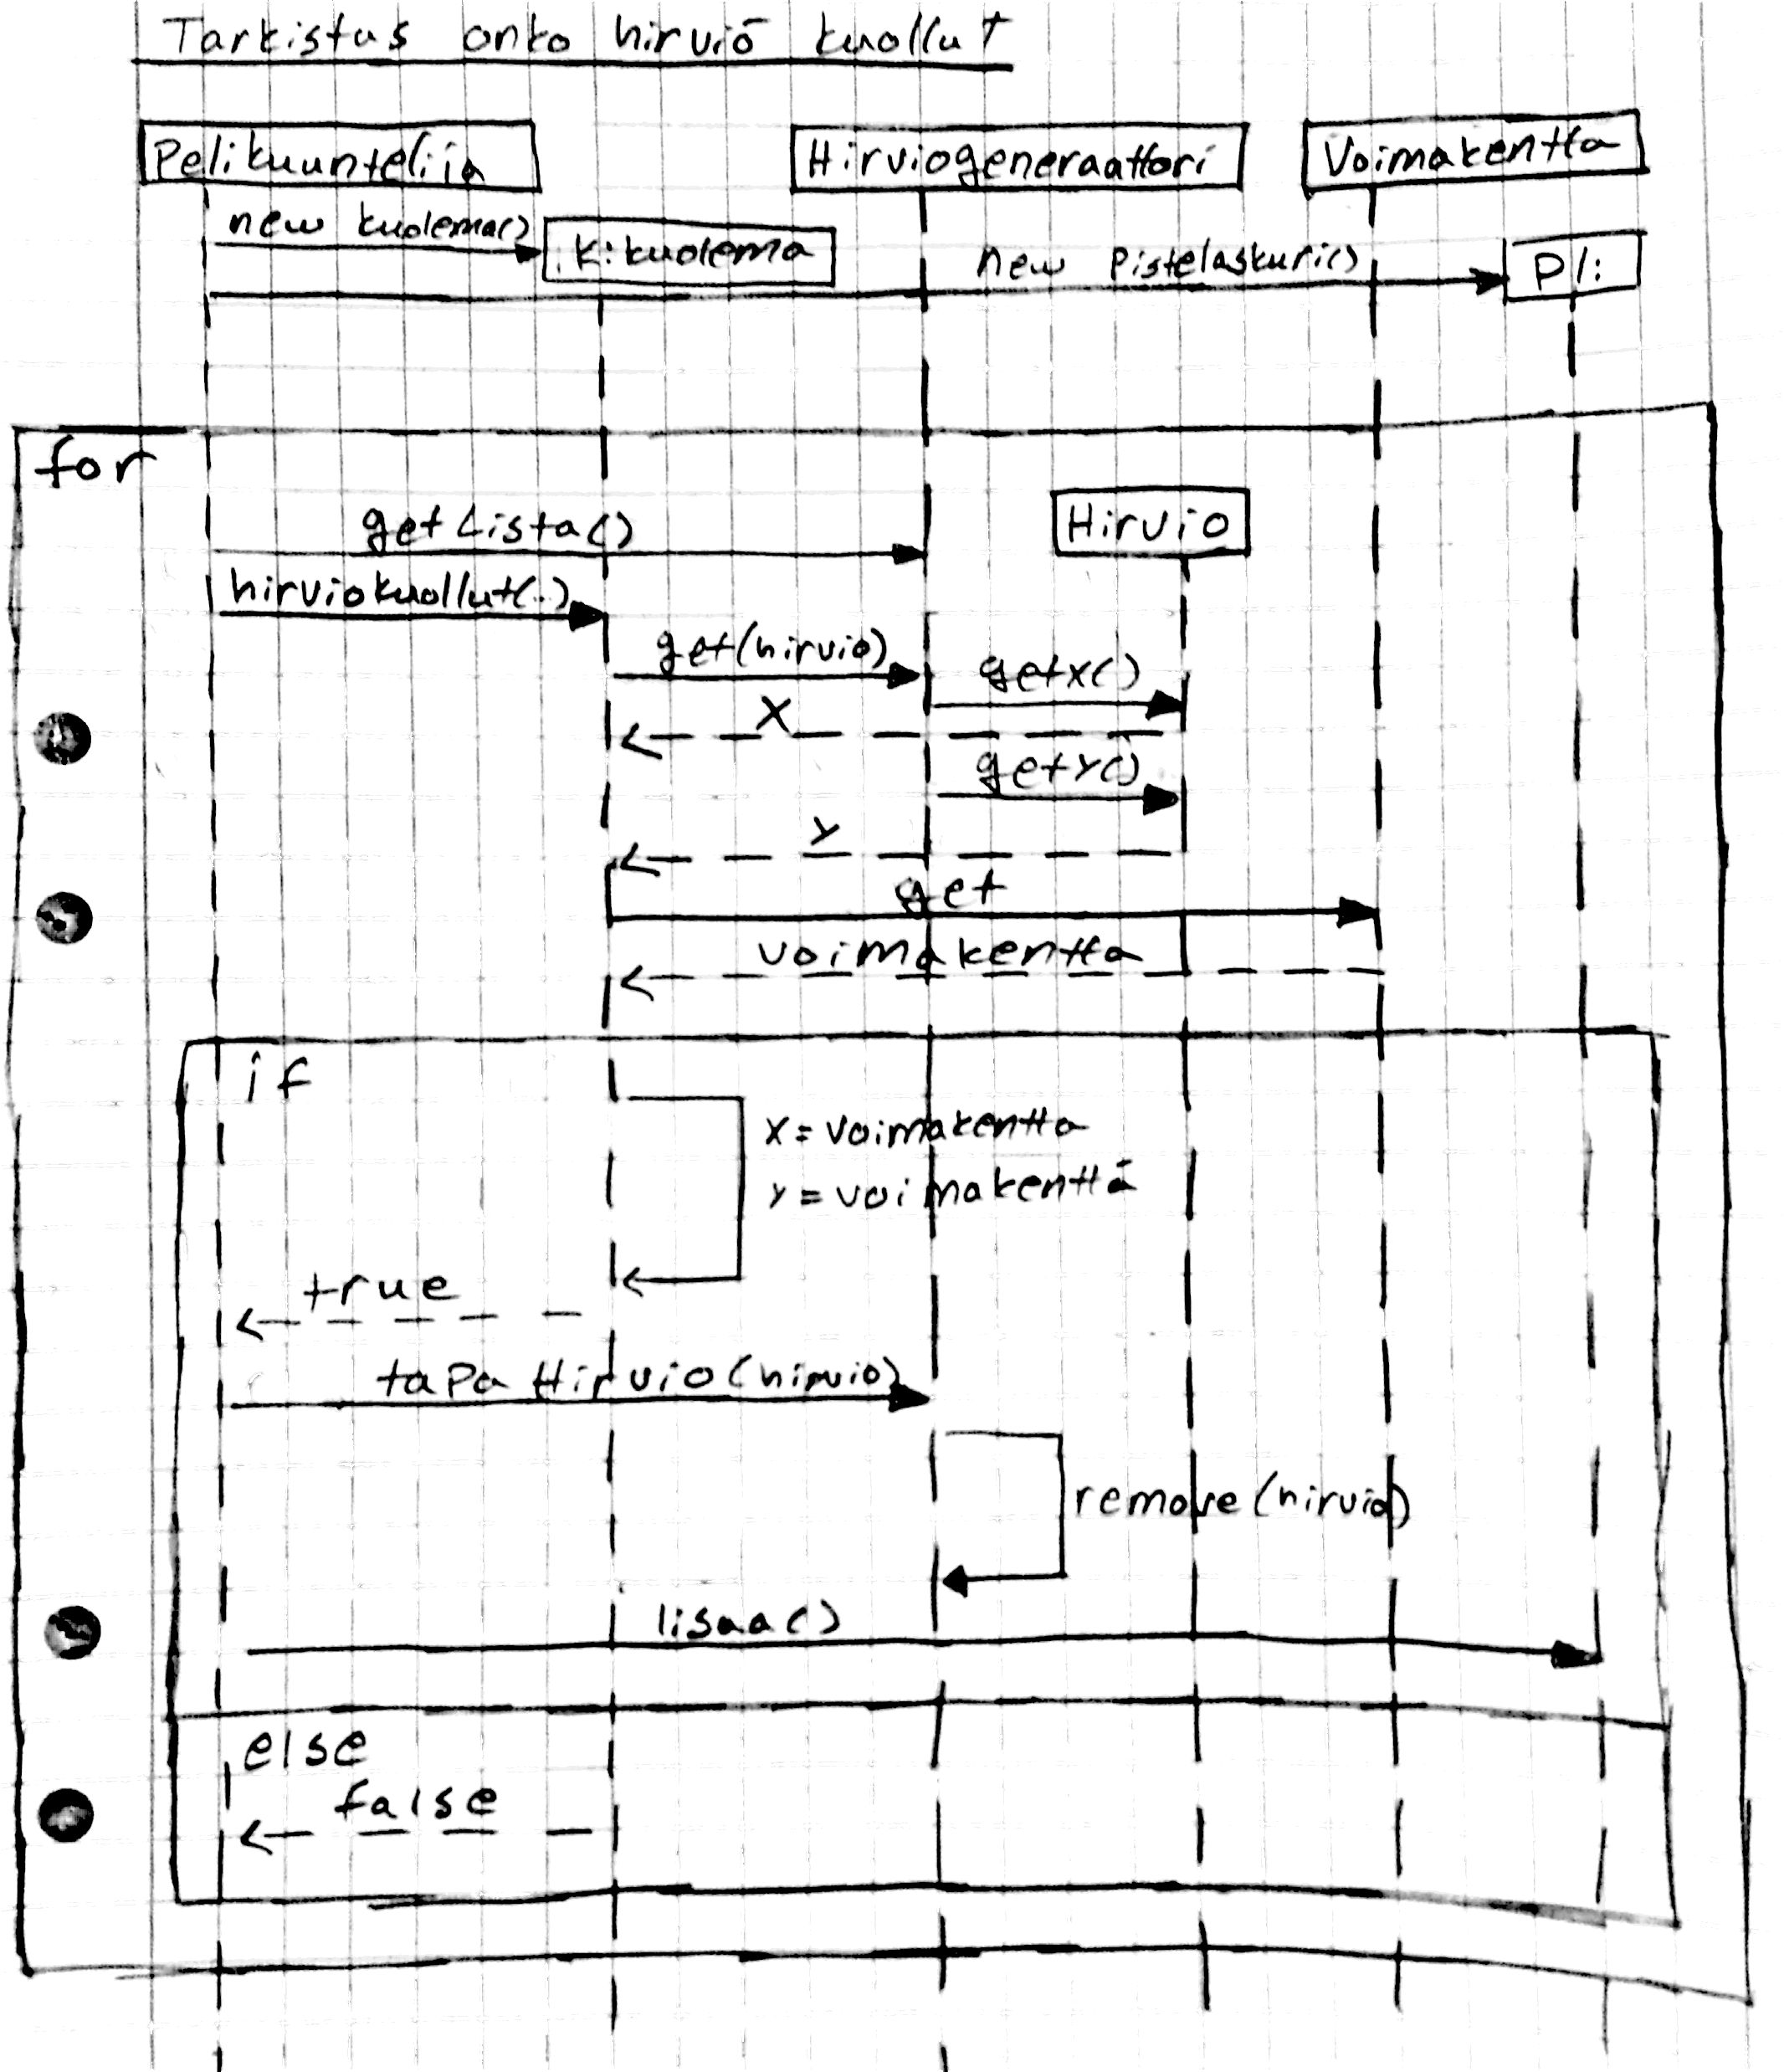 Tarkistus onko hirviö kuollut
Pelikuuntelija
Hirviogeneraattori
Voimakentta
new kuolema()
k:kuolema
new Pistelaskuri()
Pl:
for
getLista()
Hirvio
hirviokuollut(..)
get(hirvio)
getX()
X
getY()
Y
get
voimakentta
if
X=voimakentta
Y=voimakenttä
true
tapaHirvio(hirvio)
remove(hirvio)
lisaa()
else
false